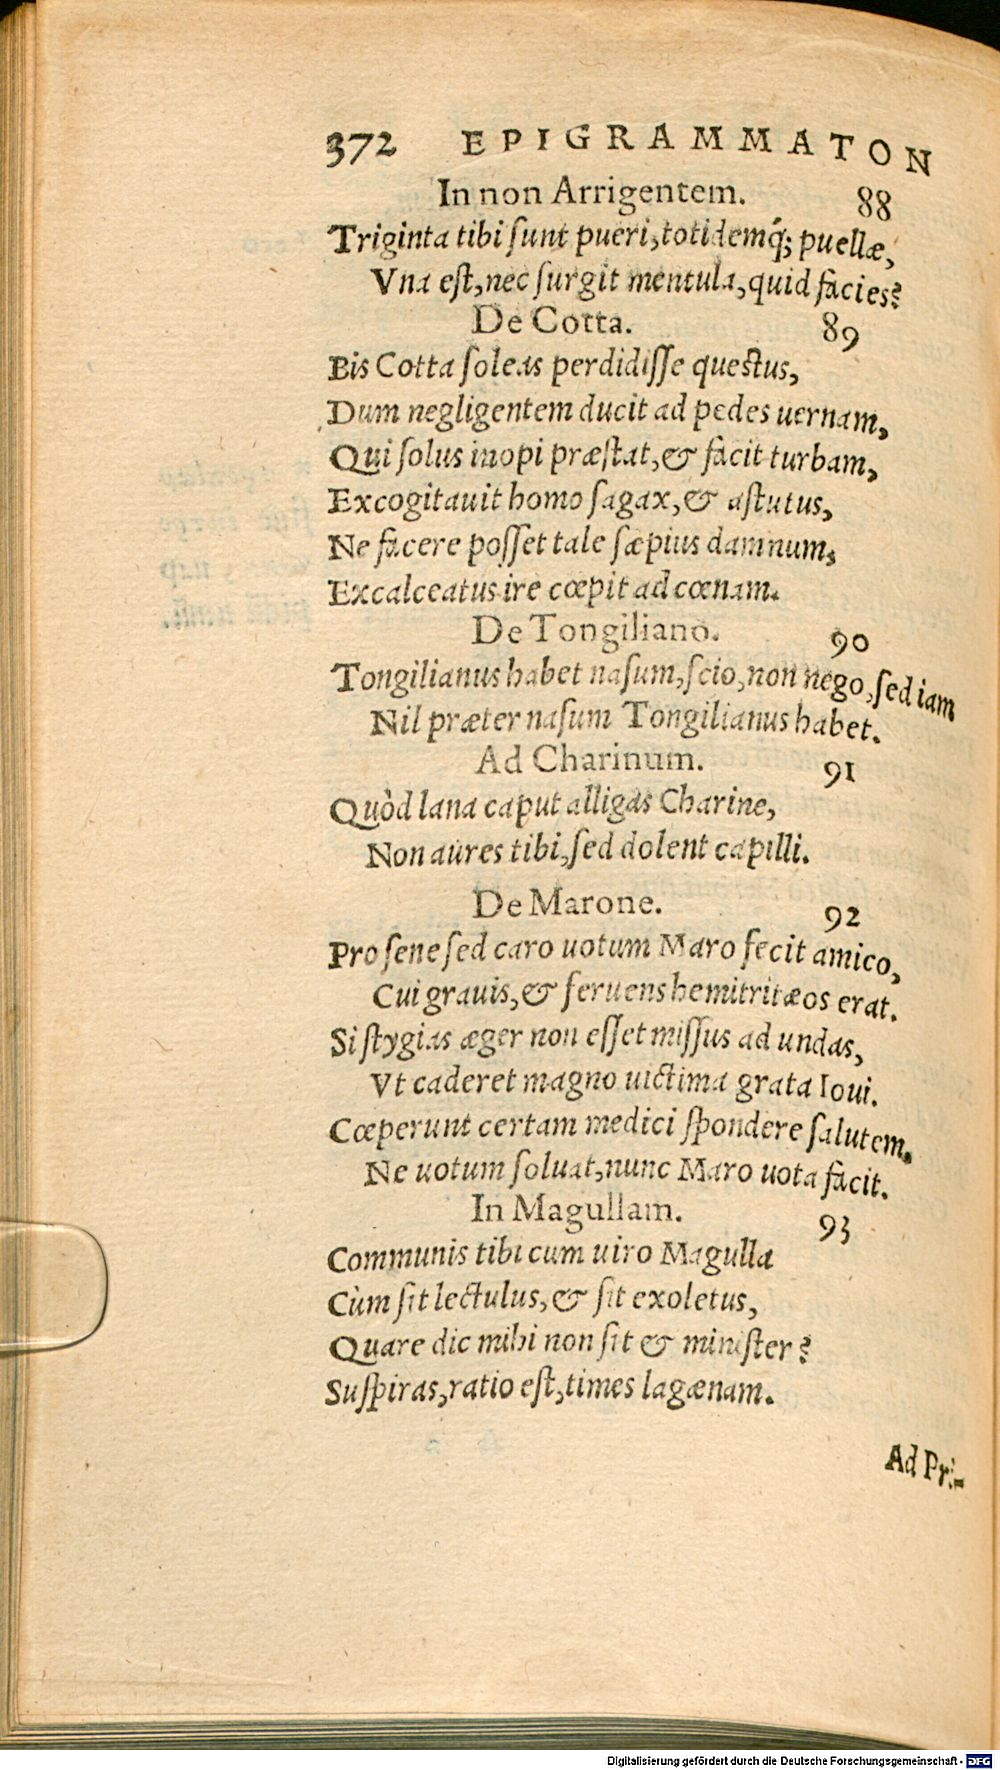 372 EPIGRAMMATON
In non Arrigentem. 88
Triginta tibi ſunt pueri, totidemq́; puellæ,
Vna eſt, nec ſurgit mentula, quid facies?
De Cotta. 89
Bis Cotta ſoleas perdidiſſe queſtus,
Dum negligentem ducit ad pedes uernam,
Qui ſolus inopi præſtat, & facit turbam,
Excogitauit homo ſagax, & aſtutus,
Ne facere poſſet tale ſæpius damnum,
Excalceatus ire cœpit ad cœnam.
De Tongiliano. 90
Tongilianus habet naſum, ſcio, non nego, ſed iam
Nil præter naſum Tongilianus habet.
Ad Charinum. 91
Quòd lana caput alligas Charine,
Non aures tibi, ſed dolent capilli.
De Marone. 92
Pro ſene ſed caro uotum Maro fecit amico,
Cui grauis, & feruens hemitritæos erat.
Si ſtygias æger non eſſet miſſus ad undas,
Vt caderet magno uictima grata Ioui.
Cœperunt certam medici ſpondere ſalutem,
Ne uotum ſoluat, nunc Maro uota facit.
In Magullam. 93
Communis tibi cum uiro Magulla
Cùm ſit lectulus, & ſit exoletus,
Quare dic mihi non ſit & miniſter?
Suſpiras, ratio eſt, times lagænam.
Ad Pri-
Digitalisierung gefördert durch die Deutsche Forschungsgemeinschaft - DFG